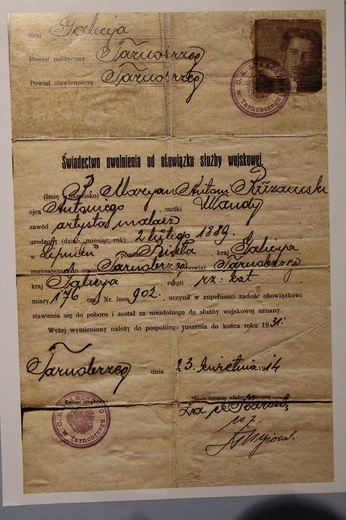 Kraj Galicja
Powiat polityczny Tarnobrzeg
Powiat stawienniczy Tarnobrzeg
Świadectwo uwolnienia od obowiązku służby wojskowej.
(imię i nazwisko) P. Maryan Antoni
ojca Antoniego matki Wandy
zawód artysta malarz
urodzony (dzień, miesiąc, rok) 2 lutego 1889.
w powiat kraj Galicya
przynależny do gminy Tarnobrzeg powiat Tarnobrzeg
kraj Galicya religii rz: kat
miary 176 cm, Nr. losu 902. uczynił w zupełności zadość obowiązkowi
stawienia się do poboru i został za niezdolnego do służby wojskowej uznany.
Wyżej wymieniony należy do pospolitego ruszenia do końca roku 1931.
Tarnobrzeg dnia 23. kwietnia 1914